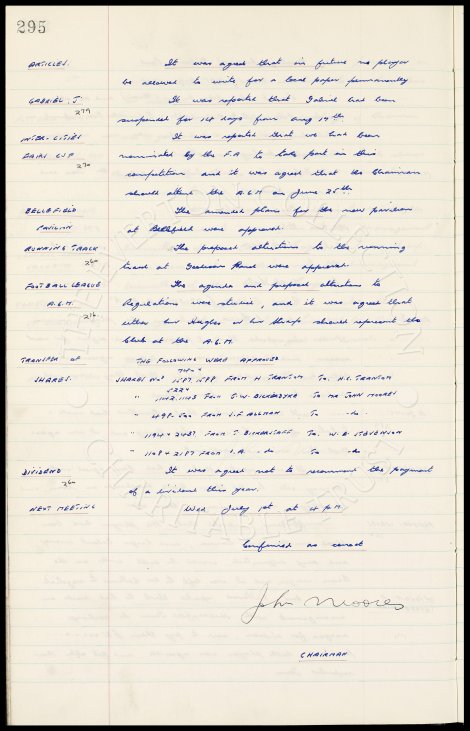 295
ARTICLES. It was agreed that in future no player
be allowed to write for a local paper permanently
GABRIEL. J. It was reported that Gabriel had been
279 suspended for 14 days from Aug 17th.
INTER-CITIES It was reported that we had been
FAIRS CUP nominated by the F.A to take part in this
270 competition and it was agreed that the Chairman
should attend the A.G.M on June 25th.
BELLEFIELD The amended plans for the new pavilion
PAVILION at Bellefield were approved.
RUNNING TRACK The proposed alterations to the running
260 track at Goodison Road were approved.
FOOTBALL LEAGUE The agenda and proposed alterations to
A.G.M. Regulations were studied, and it was agreed that
216 either Mr Hughes or Mr Sharp should represent the
Club at the A.G.M.
TRANSFER OF THE FOLLOWING WERE APPROVED
SHARES. SHARES Nos 1587.1588 FROM H TRANTOM TO. H.C. TRANTOM
" 1142.1143 FROM T.W. BICKERDYKE TO MR JOHN MOORES
" 498-500 FROM J.F ALLMAN TO -do-
" 1194 & 2487 FROM T BICKERSTAFF TO. W.B STEVENSON
" 1189 & 2187 FROM -do TO -do-
DIVIDEND It was agreed not to recommend the payment
260 of a dividend this year.
NEXT MEETING Wed July 1st at 4 P.M.
Confirmed as correct
John Moores
CHAIRMAN
THE EVERTON COLLECTION
CHARITABLE TRUST